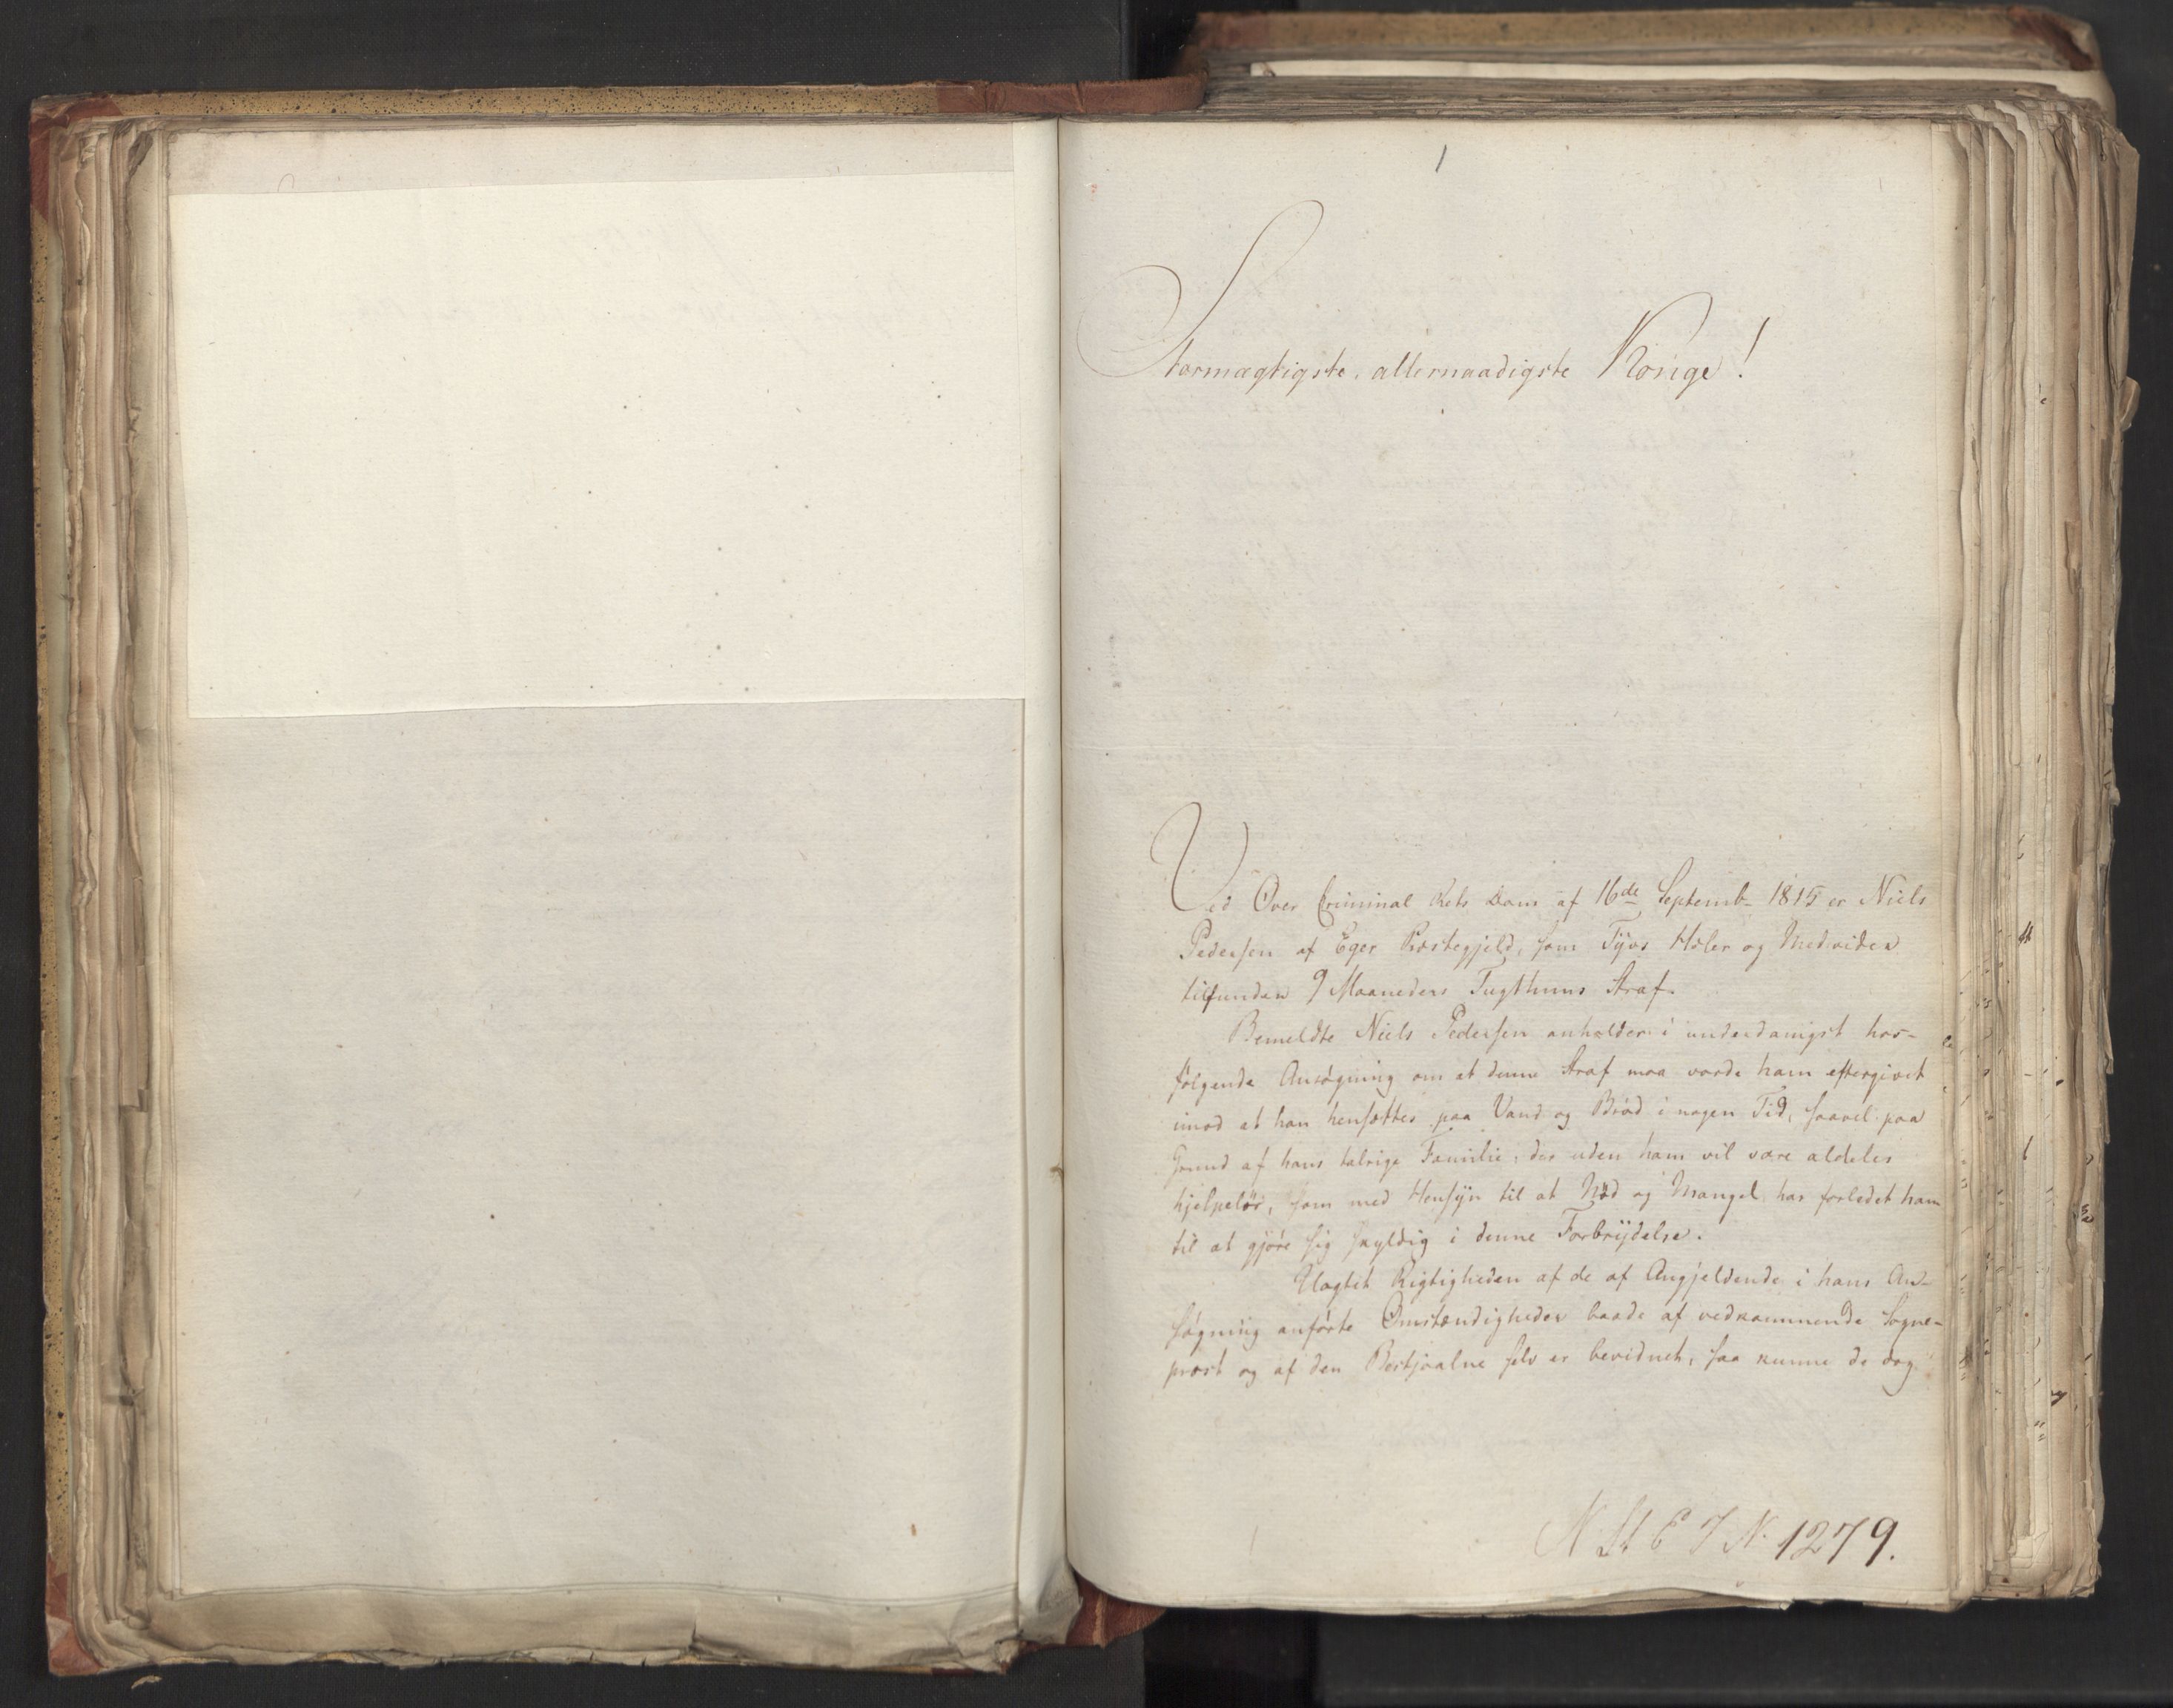 1
Stormægtigste, allernaadigste Konge!
Ved Over Criminal Rets Dom af 16de Septemb- 1815 er Niels
Pedersen af Eger Præstegjeld, som Tyvs Hæler og Medvider
tilfunden 9 Maaneders Tugthuus Straf.
Bemeldte Niels Pedersen anholder i underdanigst hos-
følgende Ansøgning om at denne Straf maa vorde ham eftergivet
imod at han hensættes paa Vand og Brød i nogen Tid, saavel paa
Grund af hans talrige Familie, der uden ham vil være aldeles
hjelpeløs, som med Hensyn til at Nød og Mangel har forledet ham
til at gjøre sig skyldig i denne Forbrydelse.
Uagtet Rigtigheden af de af Angjeldende i hans An-
søgning anførte Omstændigheder baade af vedkommende Sogne-
præst og af den Bestjaalne selv er bevidnet, saa kunne de dog
N. St. E J N. 1279.